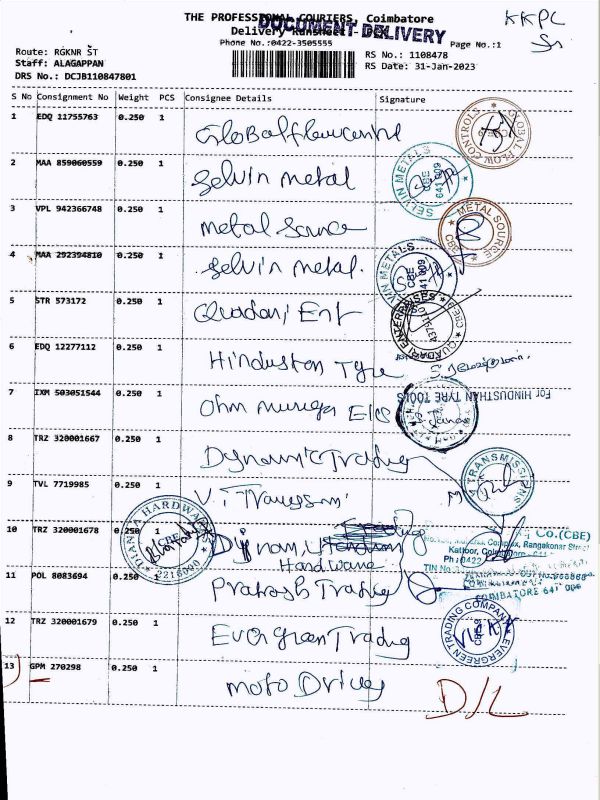 THE PROFESSIONAL COURIERS, Coimbatore
KKPC
DOCUMENT DELIVERY
Delivery Runsheet - DOX
Phone No.:0422-3505555
Page No.:1
Route: RGKNR ST
RS No.: 1108478
Staff: ALAGAPPAN
RS Date: 31-Jan-2023
DRS No.: DCJB110847801
S No Consignment No Weight PCS Consignee Details Signature
1 EDQ 11755763 0.250 1 Global flow centre
GLOBAL FLOW CONTROLS
2 MAA 859060559 0.250 1 Selvin metal
SELVIN METALS CBE 641 009
3 VPL 942366748 0.250 1 metal Source
METAL SOURCE CBE
4 MAA 292394810 0.250 1 Selvin metal.
VIN METALS CBE 641 009
5 STR 573172 0.250 1 Quadari Ent
QUADARI ENTERPRISES CBE
6 EDQ 12277112 0.250 1 Hinduston Tyre
For HINDUSTHAN TYRE TOOLS
7 IXM 503051544 0.250 1 Ohm muruga Elcs
8 TRZ 320001667 0.250 1 Dynamic Trading
9 TVL 7719985 0.250 1 V.i Transsom
TRANSMISSIONS
10 TRZ 320001678 0.250 1
Hardware
DIANA HARDWARE CBE 2216090
Co.(CBE)
Complex, Rangakonar Street
Kattoor,
Ph : 0422
TIN No
11 POL 8083694 0.250 1 Prakash Trading
COIMBATORE 641 006
12 TRZ 320001679 0.250 1 Evergreen Trading
EVERGREEN TRADING COMPANY CBE-9
13 GPM 270298 0.250 1 moto Drives
D/L